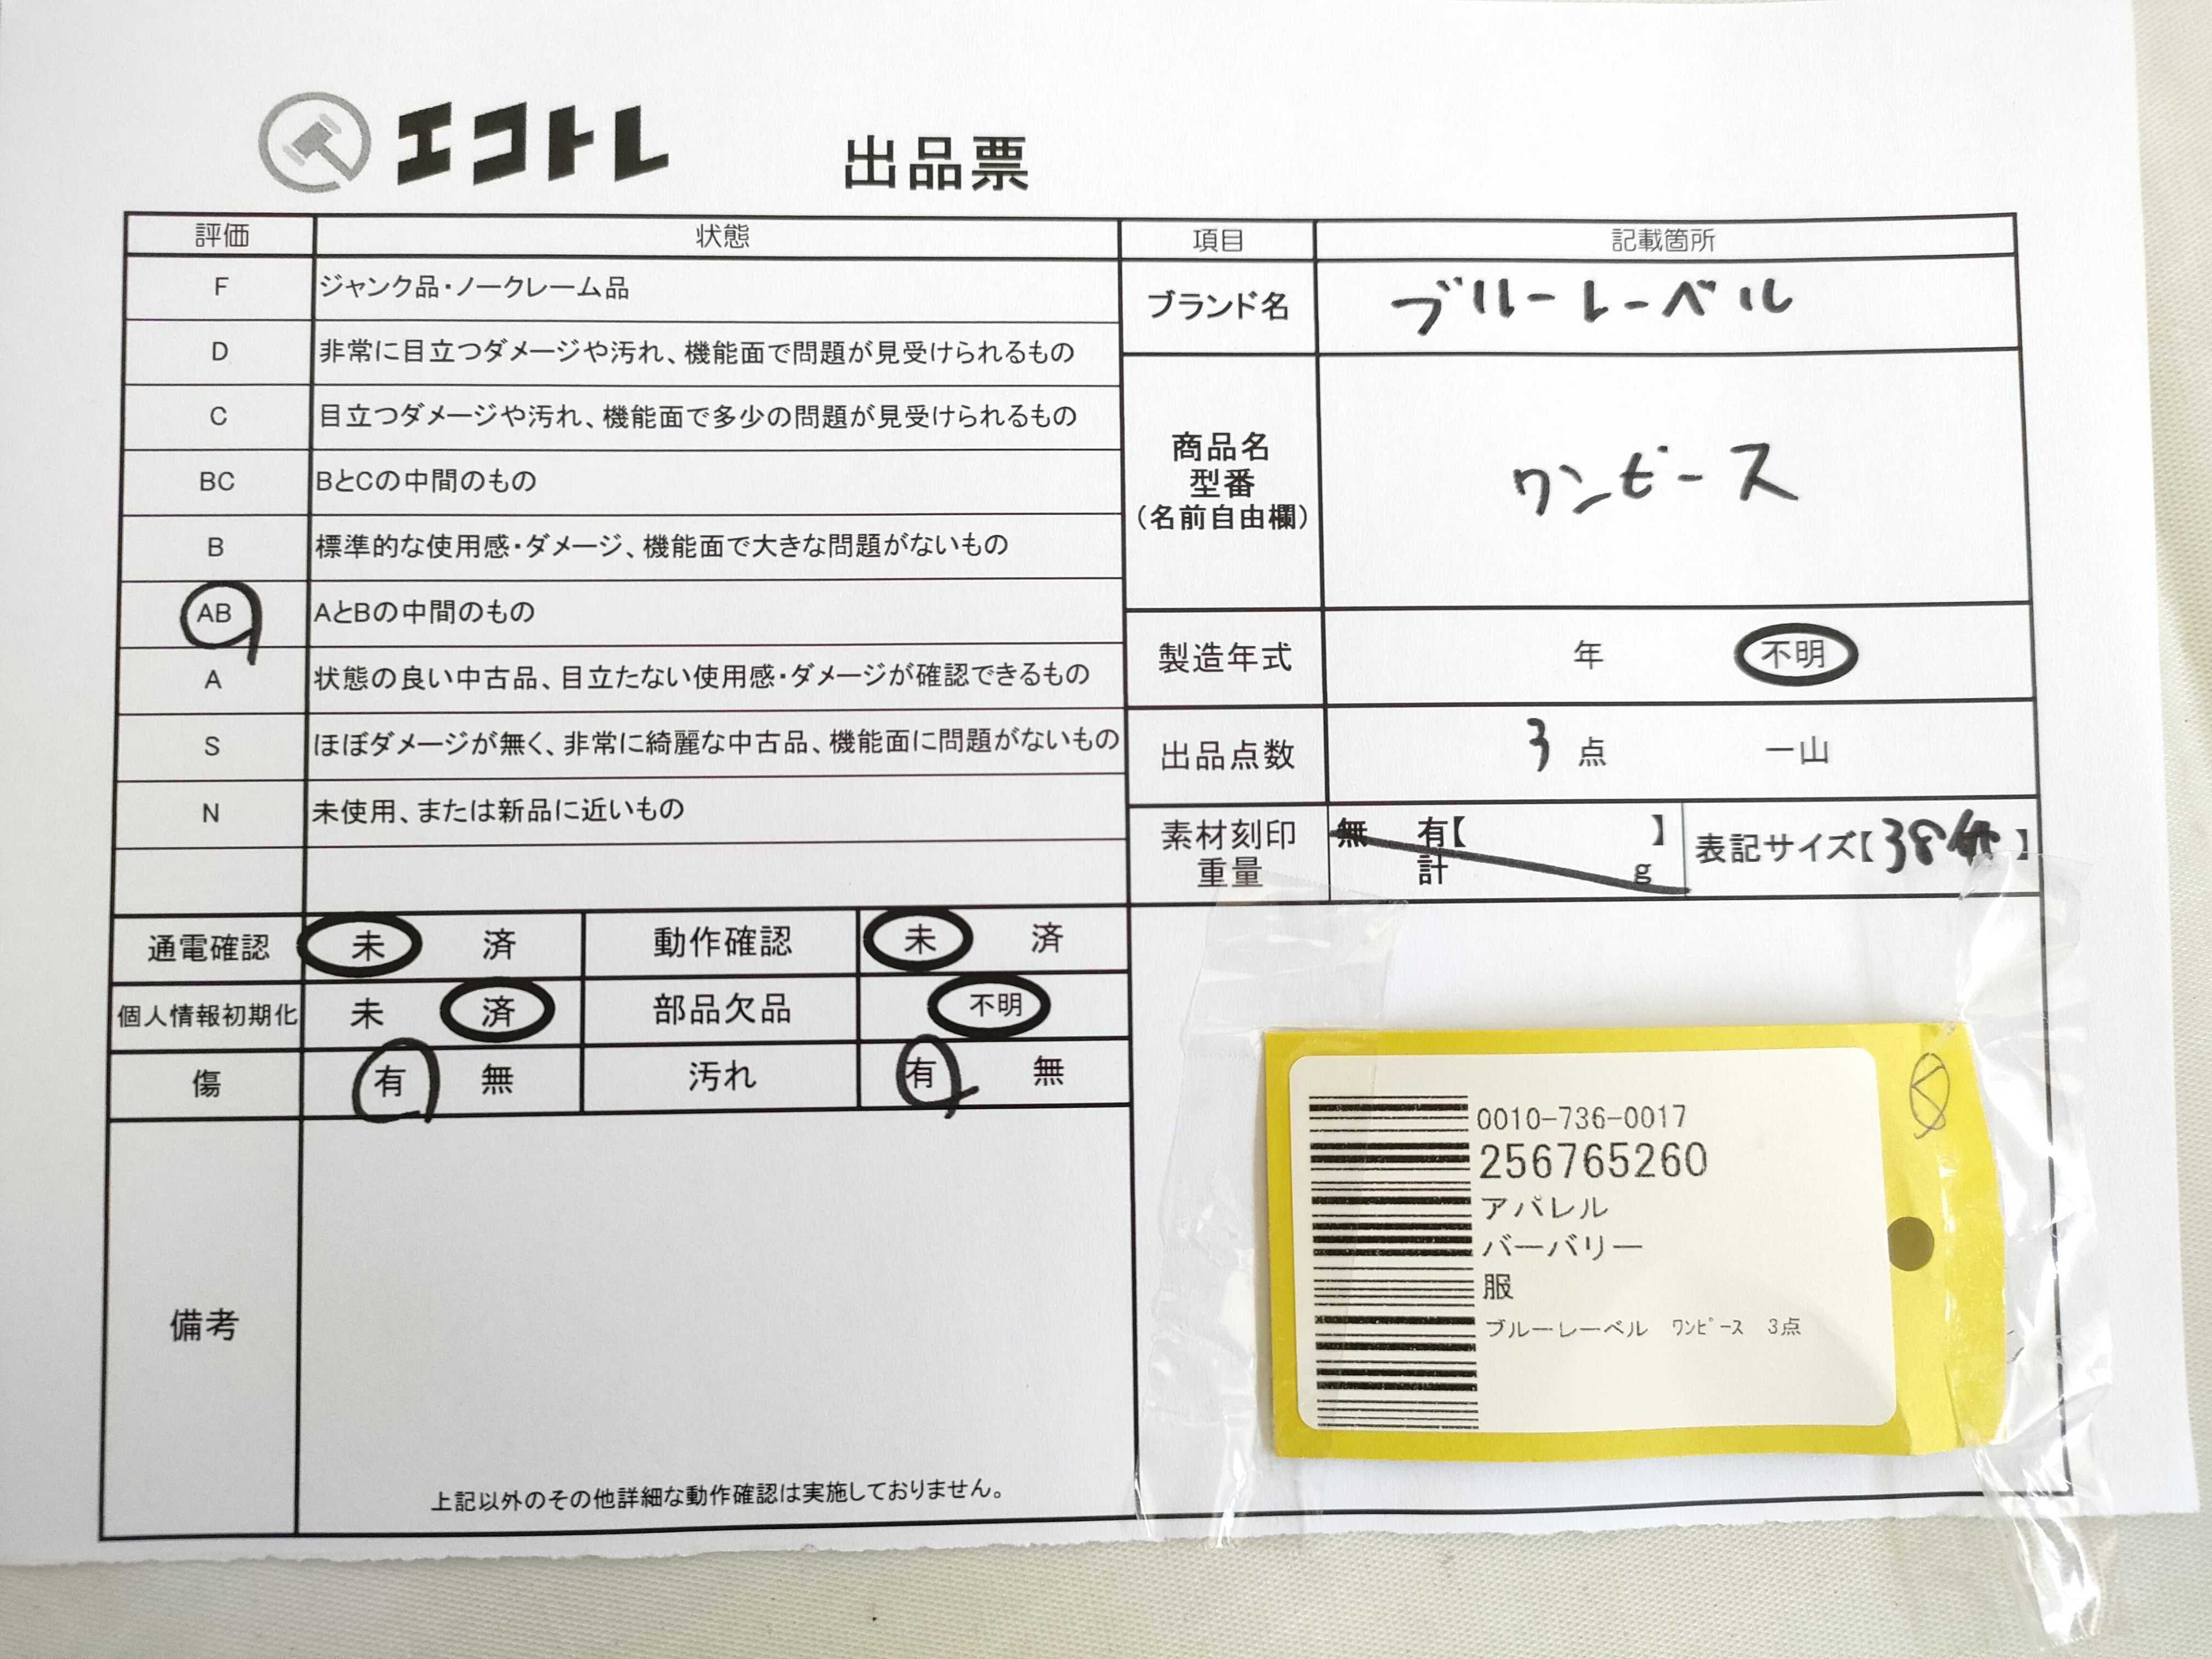 エコトレ 出品票
評価 状態
F ジャンク品・ノークレーム品
D 非常に目立つダメージや汚れ、機能面で問題が見受けられるもの
C 目立つダメージや汚れ、機能面で多少の問題が見受けられるもの
BC BとCの中間のもの
B 標準的な使用感・ダメージ、機能面で大きな問題がないもの
AB AとBの中間のもの
A 状態の良い中古品、目立たない使用感・ダメージが確認できるもの
S ほぼダメージが無く、非常に綺麗な中古品、機能面に問題がないもの
N 未使用、または新品に近いもの
項目 記載箇所
ブランド名 ブルーレーベル
商品名
型番
(名前自由欄)
ワンピース
製造年式 年 不明
出品点数 3 点 一山
素材刻印
重量
無 有【 】
計 g
表記サイズ【38 】
通電確認 未 済 動作確認 未 済
個人情報初期化 未 済 部品欠品 不明
傷 有 無 汚れ 有 無
備考
上記以外のその他詳細な動作確認は実施しておりません。
0010-736-0017
256765260
アパレル
バーバリー
服
ブルーレーベル ﾜﾝﾋﾟｰｽ 3点